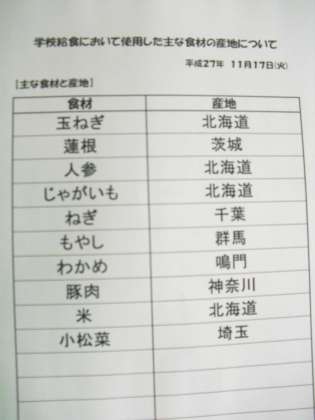 学校給食において使用した主な食材の産地について
平成27年 11月17日(火)
[主な食材と産地]
食材 産地
玉ねぎ 北海道
蓮根 茨城
人参 北海道
じゃがいも 北海道
ねぎ 千葉
もやし 群馬
わかめ 鳴門
豚肉 神奈川
米 北海道
小松菜 埼玉